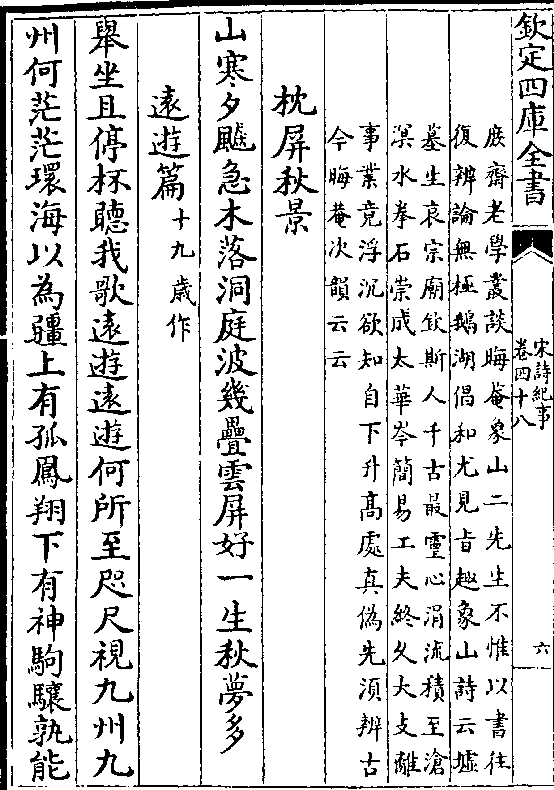 欽定四庫全書
宋詩紀事
卷四十八
六
庶齋老學叢談晦菴象山二先生不惟以書往
復辨論無極鵝湖倡和尤見㫖趣象山詩云墟
墓生哀宗廟欽斯人千古最靈心涓流積至滄
溟水拳石崇成太華岑簡易工夫終久大支離
事業竟浮沉欲知自下升髙處真偽先須辨古
今晦菴次韻云云
枕屏秋景
山寒夕飈急木落洞庭波幾疊雲屏好一生秋夢多
逺遊篇十九歲作
舉坐且停杯聽我歌逺遊逺遊何所至咫尺視九州九
州何茫茫環海以為疆上有孤鳳翔下有神駒驤孰能